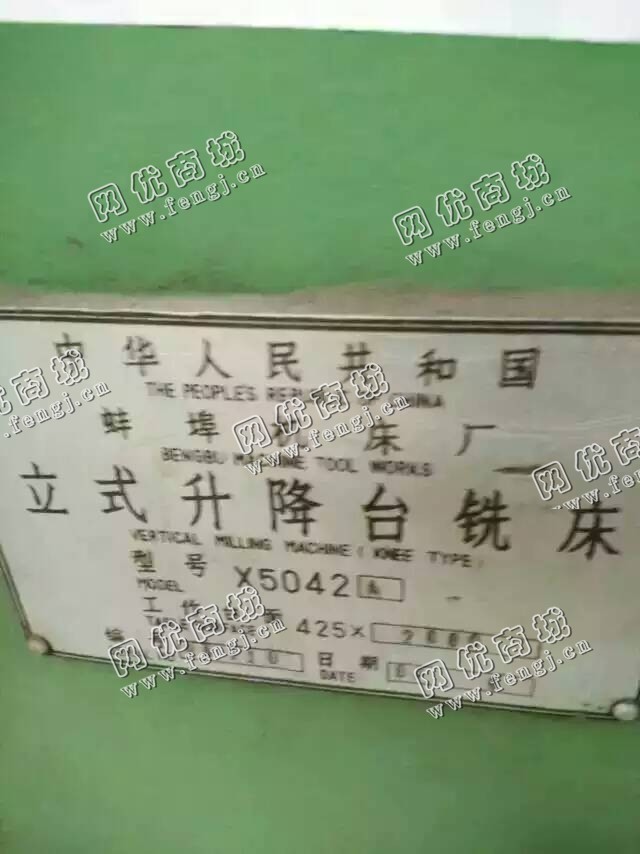 网优商城
www.fengj.cn
网优商城
www.fengj.cn
中华人民共和国
THE PEOPLE'S CHINA
网优商城
www.fengj.cn
网优商城
www.fengj.cn
蚌埠机床厂
BENGBU MACHINE TOOL WORKS
网优商城
www.fengj.cn
立式升降台铣床
VERTICAL MILLING MACHINE (KNEE TYPE)
型号
MODEL X5042 A
425× 2000
网优商城
www.fengj.cn
日期
DATE
网优商城
www.fengj.cn